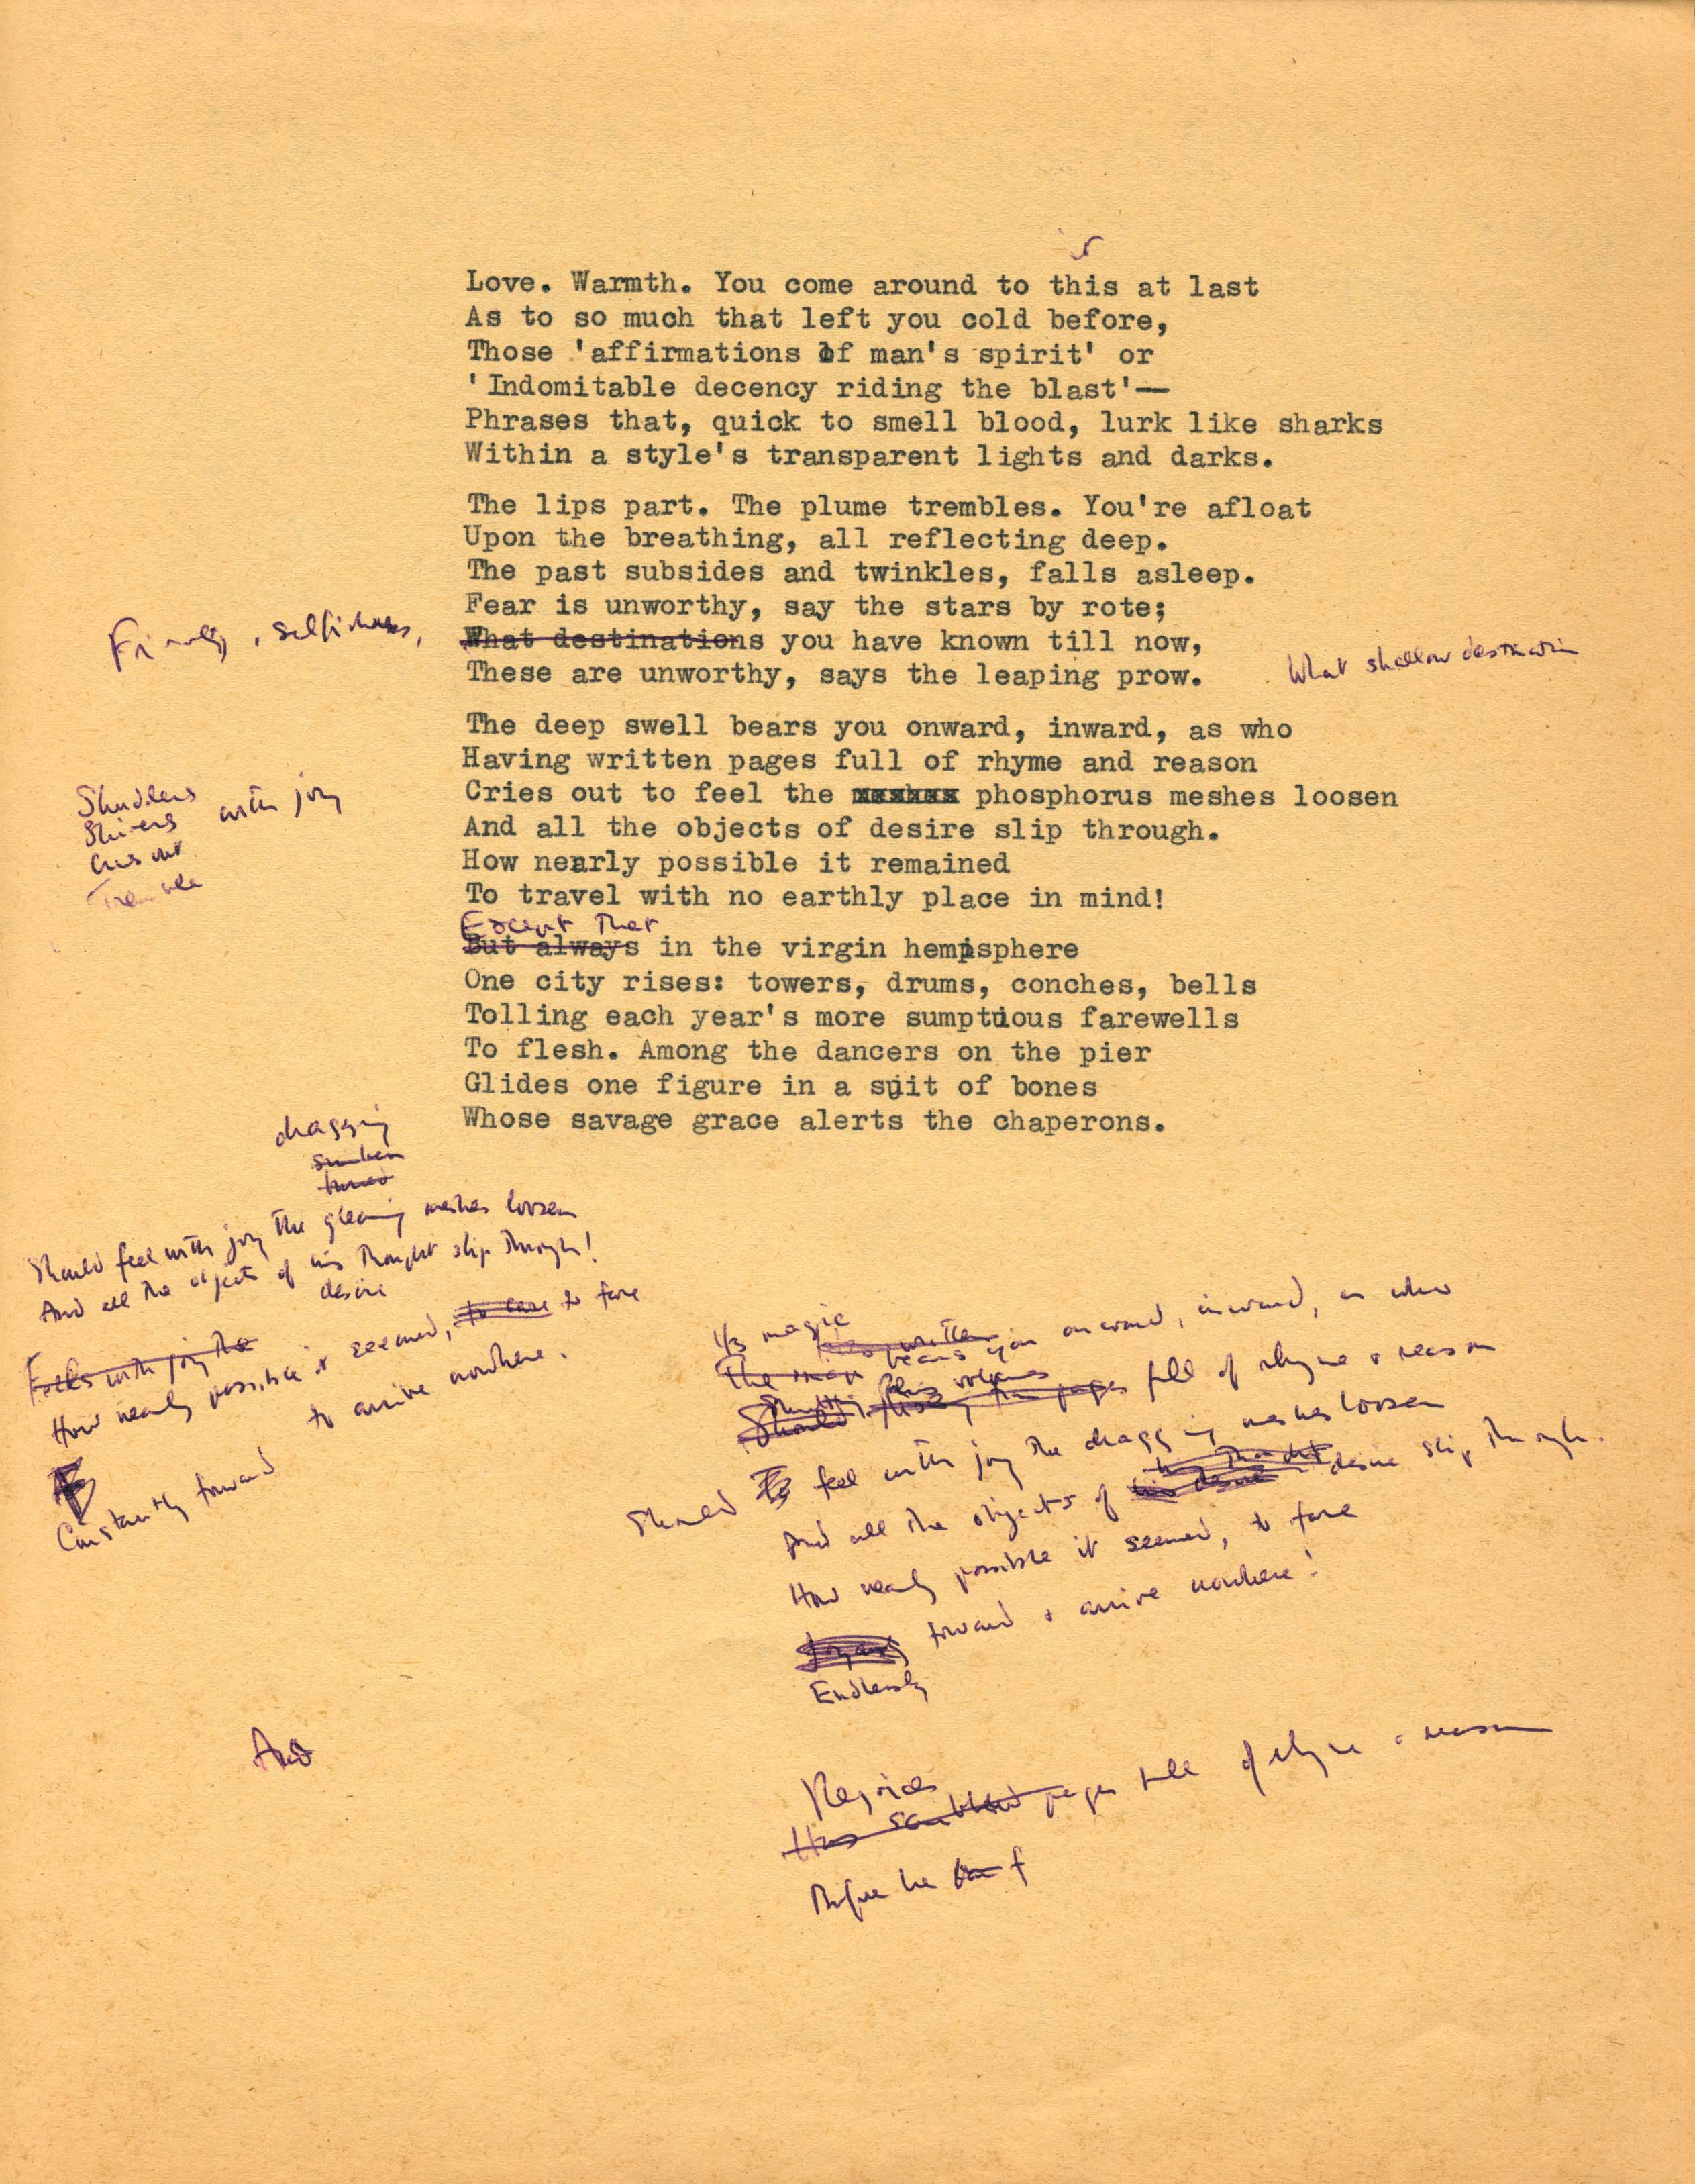 Love. Warmth. You come around to this at last
As to so much that left you cold before,
Those 'affirmations of man's spirit' or
'Indomitable decency riding the blast'—
Phrases that, quick to smell blood, lurk like sharks
Within a style's transparent lights and darks.
The lips part. The plume trembles. You're afloat
Upon the breathing, all reflecting deep.
The past subsides and twinkles, falls asleep.
Fear is unworthy, say the stars by rote;
What destinations you have known till now,
What shallow destination
These are unworthy, says the leaping prow.
The deep swell bears you onward, inward, as who
Having written pages full of rhyme and reason
Cries out to feel the phosphorus meshes loosen
Shudders
Shivers with joy
Cries out
Tremble
And all the objects of desire slip through.
How nearly possible it remained
To travel with no earthly place in mind!
Except that
But always in the virgin hemisphere
One city rises: towers, drums, conches, bells
Tolling each year's more sumptuous farewells
To flesh. Among the dancers on the pier
Glides one figure in a suit of bones
Whose savage grace alerts the chaperons.
dragging
sunken
Should feel with joy the gleaming meshes loosen
And all the objects of his thought slip through!
desire
Feels with joy the
How nearly possible it seemed, to fare
to arrive nowhere.
Constantly forward
Its magic
written
The bears you onward, inward, as who
volumes
Should pages full of rhyme & reason
Should feel with joy the dragging meshes loosen
thought
And all the objects of his desire desire slip through.
How nearly possible it seemed, to fare
forward & arrive nowhere!
Endlessly
And
Rejoices
Has scribbled pages full of rhyme & reason
he